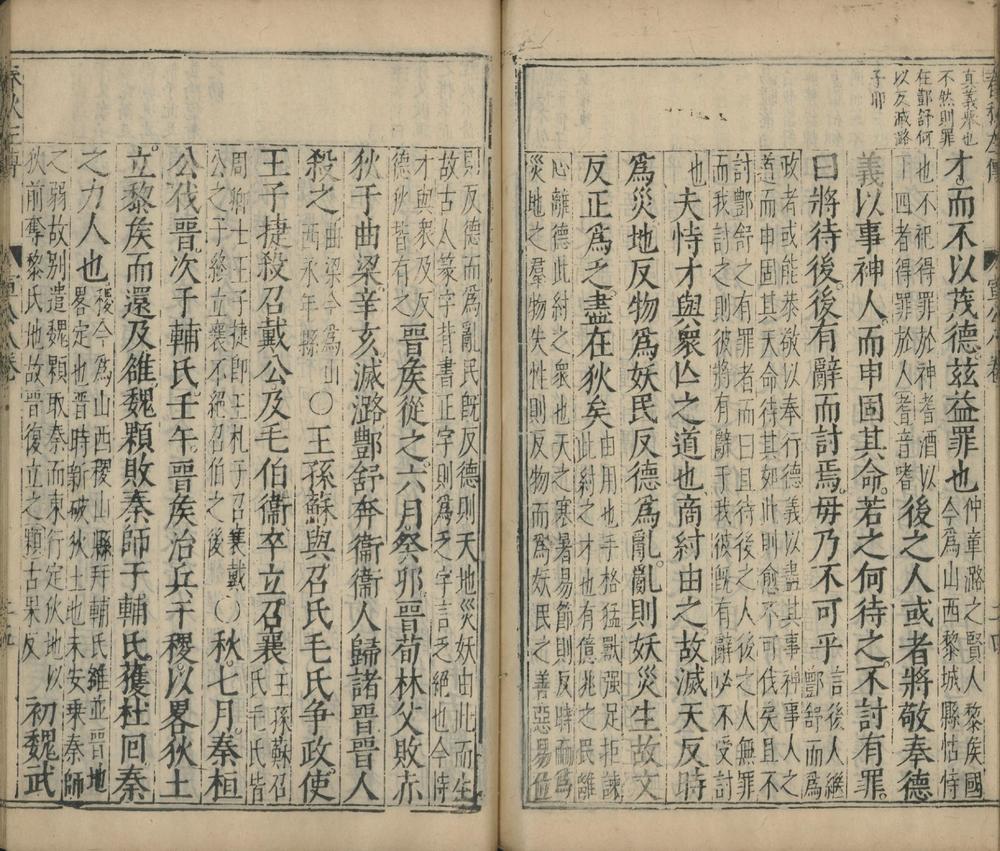 真義衆也
不然則罪
在酆舒何
以反滅潞
子耶
才而不以茂德茲益罪也
仲章潞之賢人黎矦國
今爲山西黎城縣怙恃
也不祀得罪於神耆酒以
下四者得罪於人耆音嗜
後之人或者將敬奉德
義以事神人而申固其命若之何待之不討有罪
曰將待後後有辭而討焉毋乃不可乎
言後人繼
酆舒而爲
政者或能恭敬以奉行德義以盡其事神事人之
道而申固其天命待其如此則愈不可伐矣且不
討酆舒之有罪者而曰且待後之人後之人無罪
而我討之則彼將有辭于我彼旣有辭必不受討
也
夫恃才與衆亾之道也商紂由之故滅天反時
爲災地反物爲妖民反德爲亂亂則妖災生故文
反正爲乏盡在狄矣
由用也手格猛獸强足拒諫
此紂之才也有億兆之民離
心離德此紂之衆也天之寒暑易節則反時而爲
災地之羣物失性則反物而爲妖民之善惡易位
則反德而爲亂民旣反德則天地災妖由此而生
故古人篆字背書正字則爲乏字言乏絕也今恃
才與衆及反
德狄皆有之
晉矦從之六月癸卯晉荀林父敗赤
狄于曲梁辛亥滅潞酆舒奔衞衞人歸諸晉晉人
殺之
曲梁今爲山
西永年縣
○王孫蘇與召氏毛氏爭政使
王子捷殺召戴公及毛伯衞卒立召襄
王孫蘇召
氏毛氏皆
周卿士王子捷卽王札子召襄戴
公之子終立襄不絕召伯之後
○秋七月秦桓
公伐晉次于輔氏壬午晉矦治兵于稷以畧狄土
立黎矦而還及雒魏顆敗秦師于輔氏獲杜回秦
之力人也
稷今爲山西稷山縣幷輔氏雒並晉地
畧定也晉時新破狄土地未安乗秦師
之弱故别遣魏顆取秦而東行定狄地以
狄前奪黎氏地故晉復立之顆古果反
初魏武
春秋左傳
宣公八卷